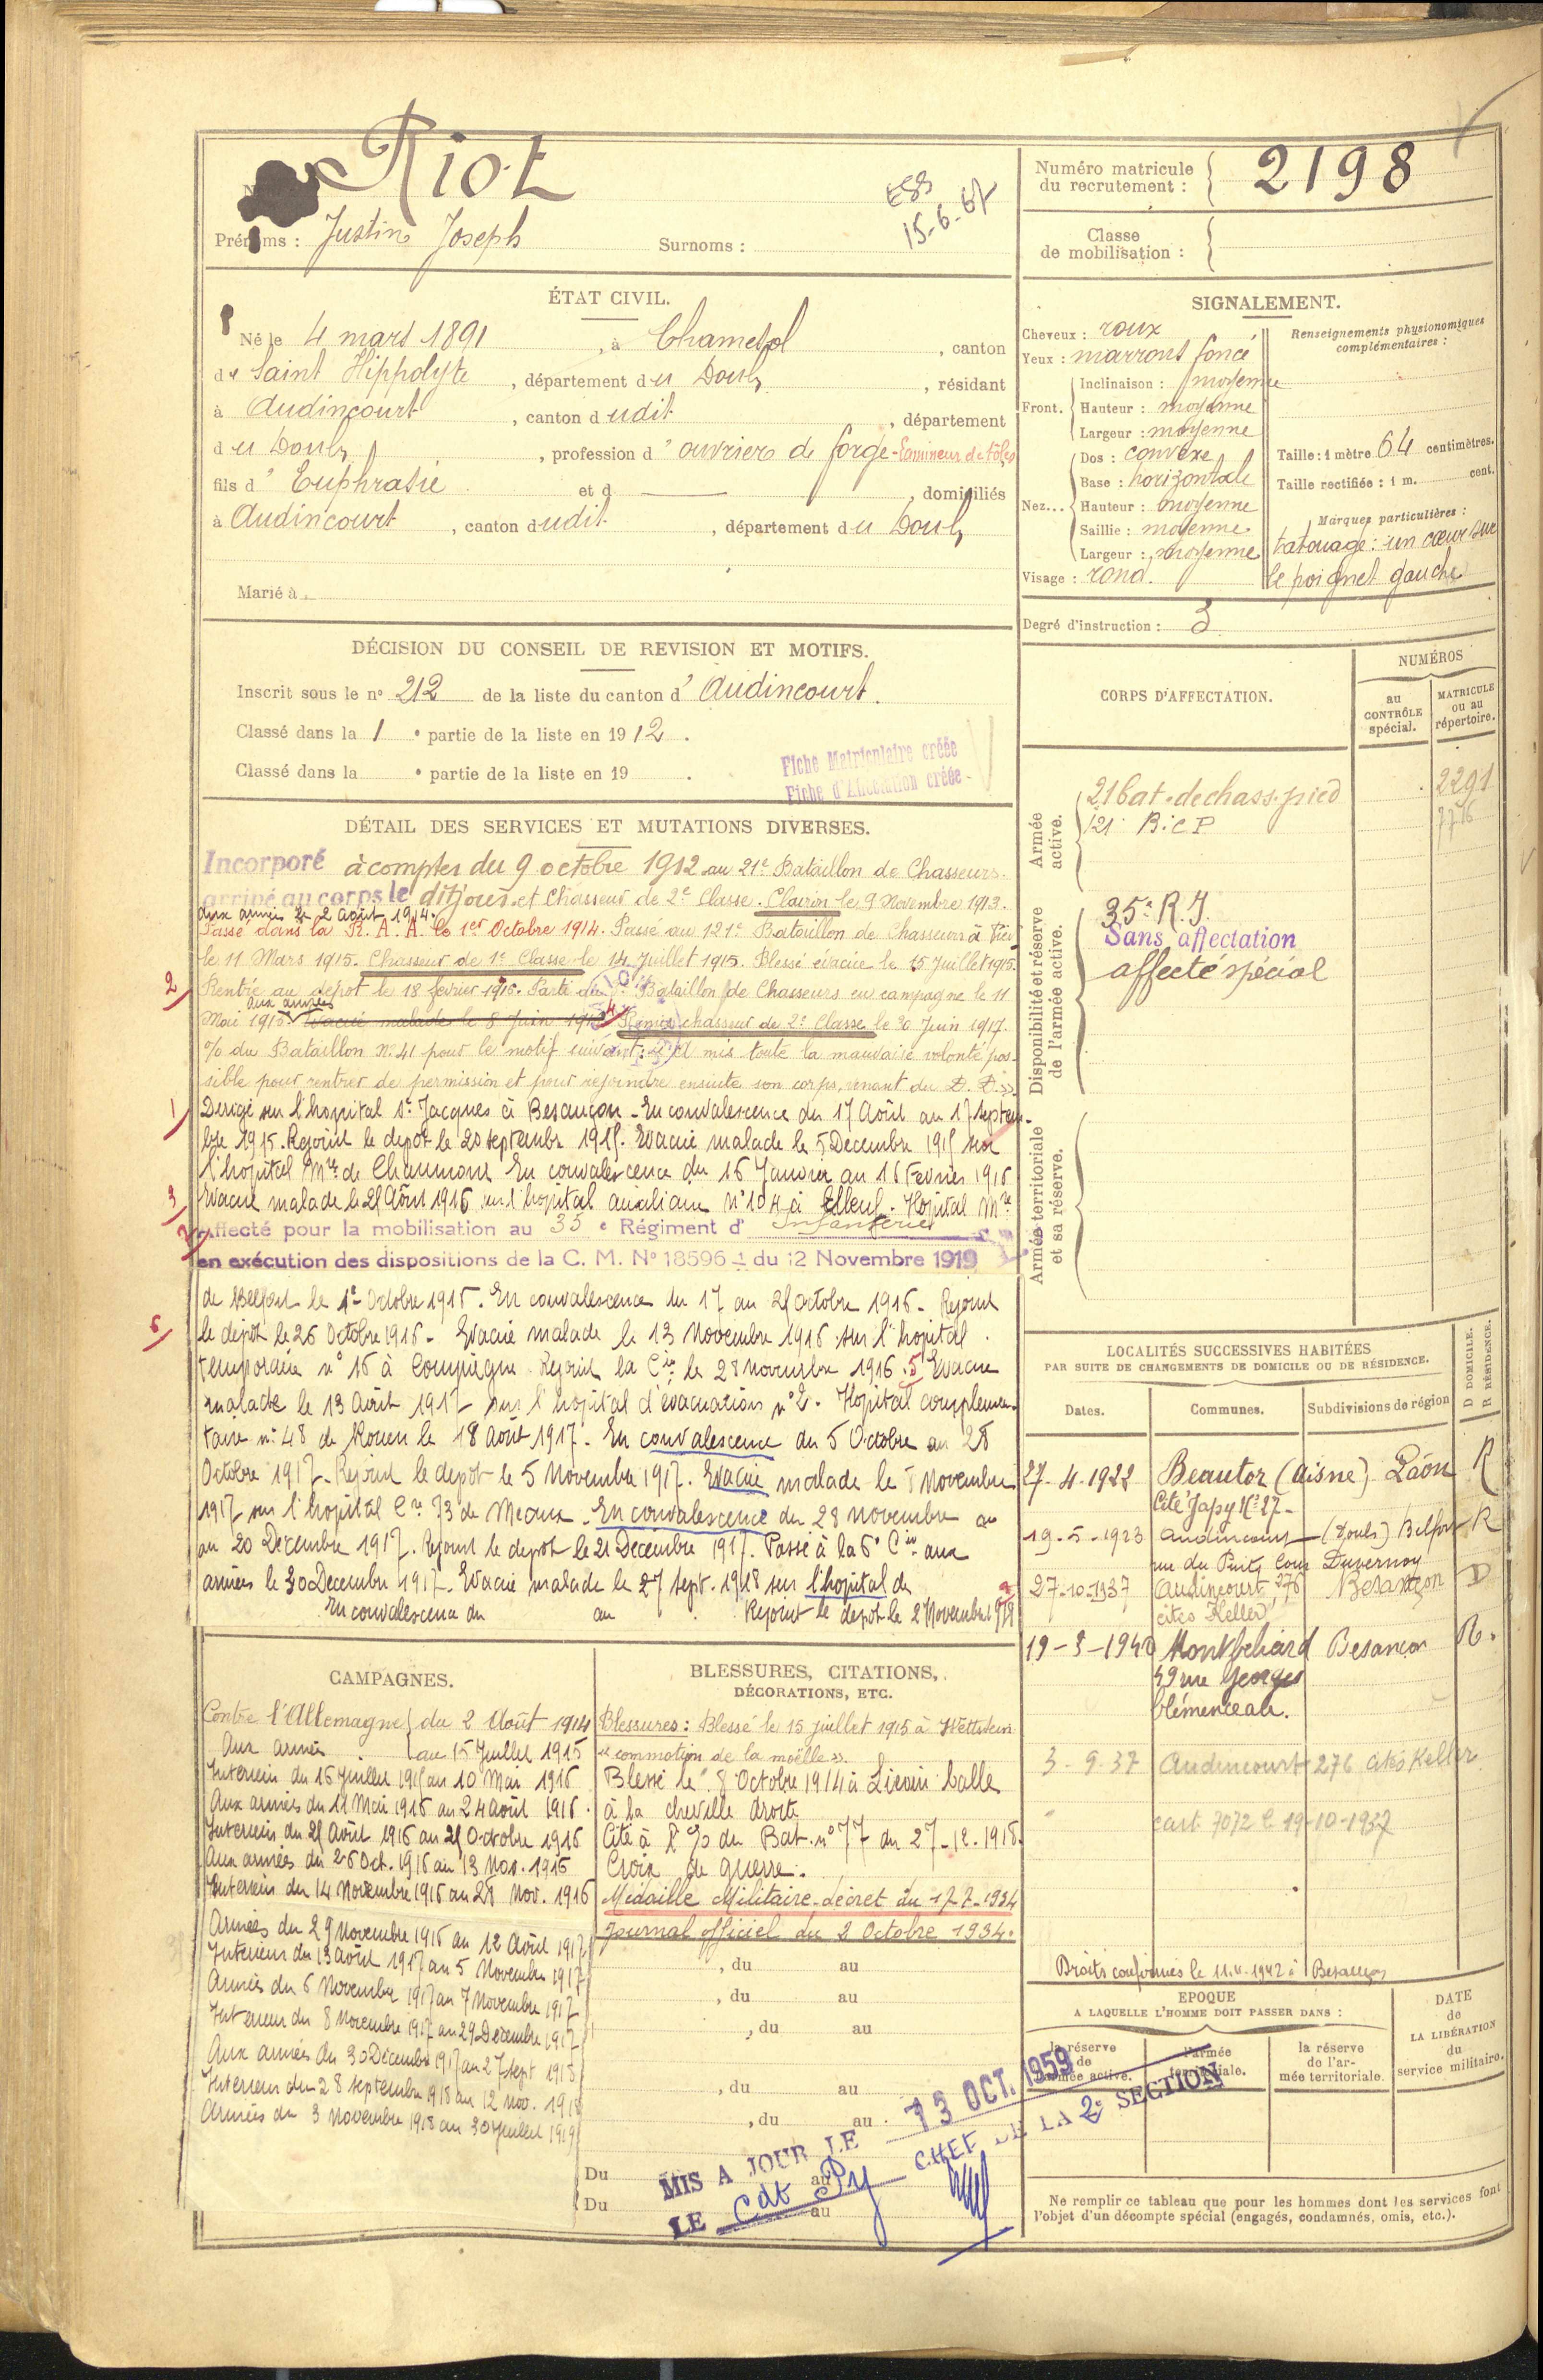 Riot
Prénoms : Justin Joseph Surnoms :
ESS
15-6-67
Numéro matricule du recrutement : 2198
Classe de mobilisation :
ÉTAT CIVIL.
Né le 4 mars 1891, à Chamesol, canton
de Saint Hippolyte, département du Doubs, résidant
à Audincourt, canton dudit, département
du Doubs, profession d'ouvrier de forge - Lamineur de tôles
fils d'Euphrasie et d — , domiciliés
à Audincourt, canton dudit, département du Doubs
Marié à
SIGNALEMENT.
Cheveux : roux
Yeux : marrons foncé
Front. Inclinaison : moyenne
Hauteur : moyenne
Largeur : moyenne
Nez... Dos : convexe
Base : horizontale
Hauteur : moyenne
Saillie : moyenne
Largeur : moyenne
Visage : rond.
Renseignements physionomiques complémentaires :
Taille : 1 mètre 64 centimètres.
Taille rectifiée : 1 m. cent.
Marques particulières :
tatouage : un cœur sur
le poignet gauche
Degré d'instruction : 3
DÉCISION DU CONSEIL DE REVISION ET MOTIFS.
Inscrit sous le n° 212 de la liste du canton d'Audincourt.
Classé dans la 1e partie de la liste en 1912.
Classé dans la e partie de la liste en 19 .
Fiche Matriculaire créée
Fiche d'Annotation créée
DÉTAIL DES SERVICES ET MUTATIONS DIVERSES.
Incorporé à compter du 9 octobre 1912 au 21e Bataillon de Chasseurs.
arrivé au corps le dit jour et Chasseur de 2e Classe. Clairon le 9 Novembre 1913.
aux armées le 2 août 1914.
Passé dans la R.A.A. le 1er Octobre 1914. Passé au 121e Bataillon de Chasseurs à Pied
le 11 Mars 1915. Chasseur de 1e Classe le 14 Juillet 1915. Blessé évacué le 15 Juillet 1915.
2/ Rentré au dépôt le 18 février 1916. Parti du Bataillon de Chasseurs en campagne le 11
aux armées
Mai 1916. Evacué malade le 8 Juin 1916 4/ Remis chasseur de 2e Classe le 30 Juin 1917.
% du Bataillon No 41 pour le motif suivant : « A mis toute la mauvaise volonté pos-
sible pour rentrer de permission et pour rejoindre ensuite son corps, venant du D.D. »
1/ Dirigé sur l'hopital St Jacques à Besançon - En convalescence du 17 Août au 17 Septem-
bre 1915. Rejoint le depot le 20 septembre 1915. Evacué malade le 5 Decembre 1915 sur
l'hopital Mre de Chaumont En convalescence du 16 Janvier au 16 Fevrier 1916
3/ Evacué malade le 25 Août 1916 sur l'hopital auxiliaire n° 104 à Elbeuf. Hopital Mre
Affecté pour la mobilisation au 35e Régiment d'Infanterie
en exécution des dispositions de la C. M. No 18596 du 12 Novembre 1919
de Belfort le 1er Octobre 1916. En convalescence du 17 au 25 octobre 1916 - Rejoint
6/ le dépôt le 26 Octobre 1916 - Evacué malade le 13 Novembre 1916 sur l'hopital
temporaire n° 16 à Compiègne. Rejoint la Cie le 28 novembre 1916. 5/ Evacué
malade le 13 Août 1917 sur l'hopital d'évacuation n° 2. Hopital complemen-
taire n° 48 de Rouen le 18 août 1917. En convalescence du 5 Octobre au 28
Octobre 1917 - Rejoint le depot le 5 Novembre 1917. Evacué malade le 8 Novembre
1917 sur l'hopital Cre 73 de Meaux - En convalescence du 28 novembre au
au 20 Decembre 1917. Rejoint le depot le 21 Decembre 1917. Passé à la 6e Cie aux
armées le 30 Decembre 1917 - Evacué malade le 27 sept. 1918 sur l'hopital de
En convalescence du au Rejoint le depot le 2 Novembre 1918
CORPS D'AFFECTATION.
NUMÉROS
au CONTRÔLE spécial.
MATRICULE ou au répertoire.
Armée active.
21 bat. de chass. pied 2291
121 B.C.P 7716
Disponibilité et réserve de l'armée active.
35e R.I.
Sans affectation
affecté spécial
Armée territoriale et sa réserve.
LOCALITÉS SUCCESSIVES HABITÉES
PAR SUITE DE CHANGEMENTS DE DOMICILE OU DE RÉSIDENCE.
Dates. Communes. Subdivisions de région D DOMICILE. R RÉSIDENCE.
27-4-1922 Beautor (Aisne) Laon R
Cité Japy No 27 -
19-5-1923 Audincourt (Doubs) Belfort R
rue du Puits Cour Duvernoy
27-10-1937 Audincourt 276 Besançon D
cités Keller
19-3-1940 Montbéliard Besançon R.
49 rue Georges
Clémenceau.
3-9-37 Audincourt 276 cités Keller
cart 7072 19-10-1937
Droits confirmés le 11.4.1942 à Besançon
CAMPAGNES.
Contre l'Allemagne du 2 Août 1914
Aux armées au 15 Juillet 1915
Interieur du 16 Juillet 1915 au 10 Mai 1916
Aux armées du 11 Mai 1916 au 24 août 1916
Interieur du 25 Août 1916 au 25 Octobre 1916
Aux armées du 26 Oct. 1916 au 13 Nov. 1916
Interieur du 14 Novembre 1916 au 28 Nov. 1916
Armées du 29 Novembre 1916 au 12 Août 1917
Interieur du 13 août 1917 au 5 Novembre 1917
Armées du 6 Novembre 1917 au 7 Novembre 1917
Interieur du 8 Novembre 1917 au 29 Decembre 1917
Aux armées du 30 Décembre 1917 au 27 Sept 1918
Interieur du 28 septembre 1918 au 12 nov. 1918
Armées du 3 Novembre 1918 au 30 Juillet 1919
BLESSURES, CITATIONS, DÉCORATIONS, ETC.
Blessures : Blessé le 15 juillet 1915 à Wettstein
« commotion de la moëlle ».
Blessé le 8 Octobre 1914 à Liévin balle
à la cheville droite
Cité à l'% du Bat. n° 77 du 27-12-1918.
Croix de guerre.
Médaille Militaire - décret du 17-7-1934
Journal officiel du 2 Octobre 1934.
, du au
, du au
, du au
, du au
, du au
Du au
Du au
MIS A JOUR LE 13 OCT. 1959
LE Cdt Py CHEF DE LA 2e SECTION
EPOQUE
A LAQUELLE L'HOMME DOIT PASSER DANS :
la réserve de l'armée active.
l'armée territoriale.
la réserve de l'armée territoriale.
DATE de LA LIBÉRATION du service militaire.
Ne remplir ce tableau que pour les hommes dont les services font
l'objet d'un décompte spécial (engagés, condamnés, omis, etc.).